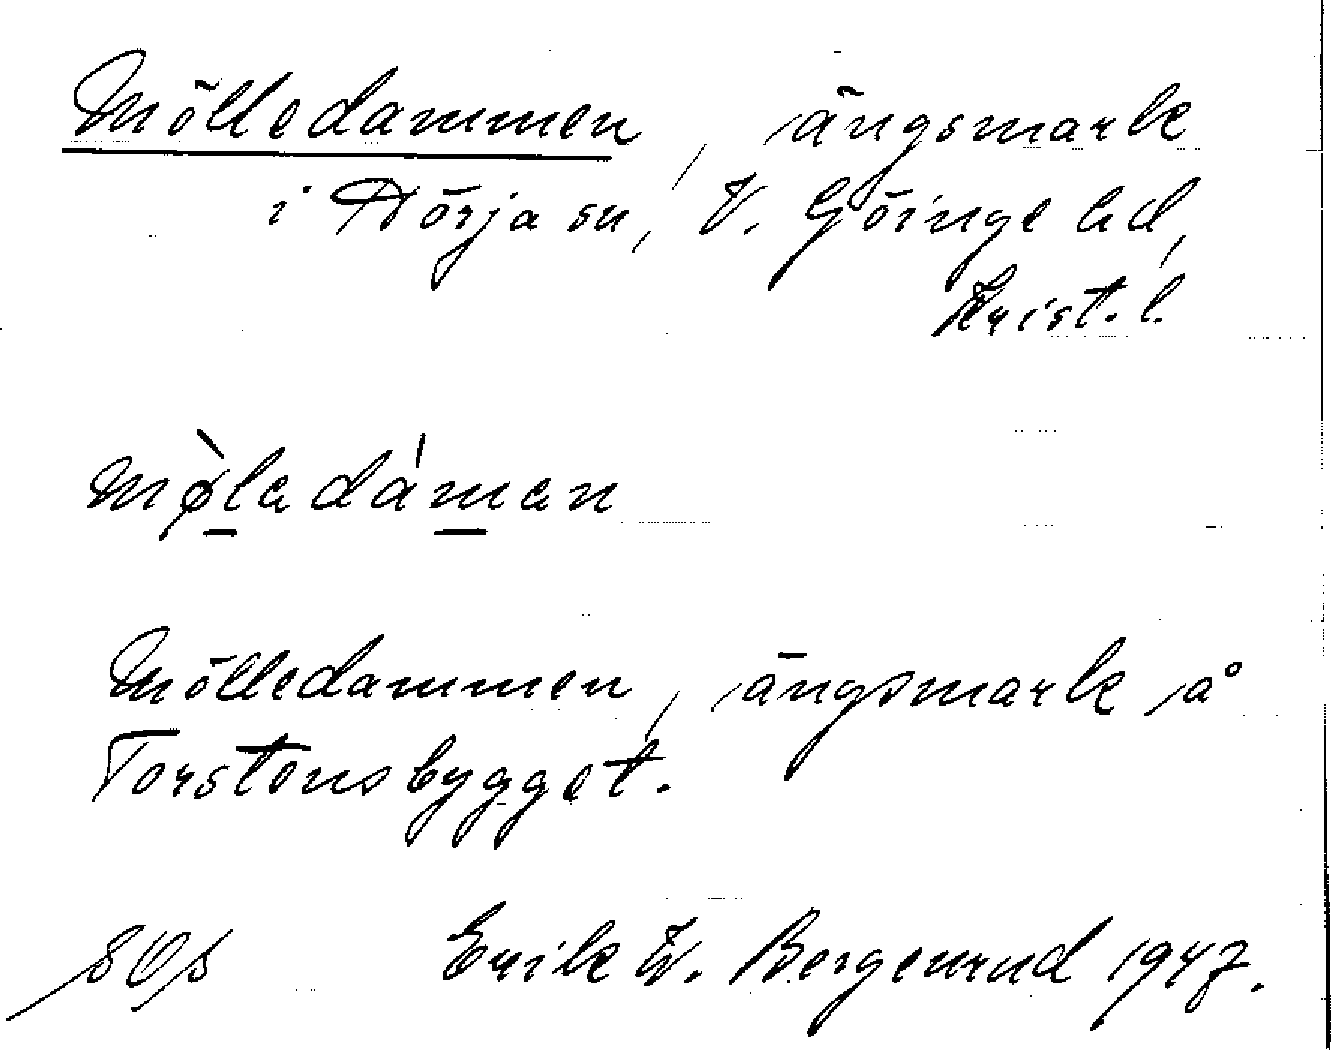 Mölledammen, ängsmark
i Nörja sn, V. Göinge hd,
Krist. l.
mø̀ladámɘn
Mölledammen, ängsmark å
Torstensbygget.
Erik W. Bergenrud 1947.